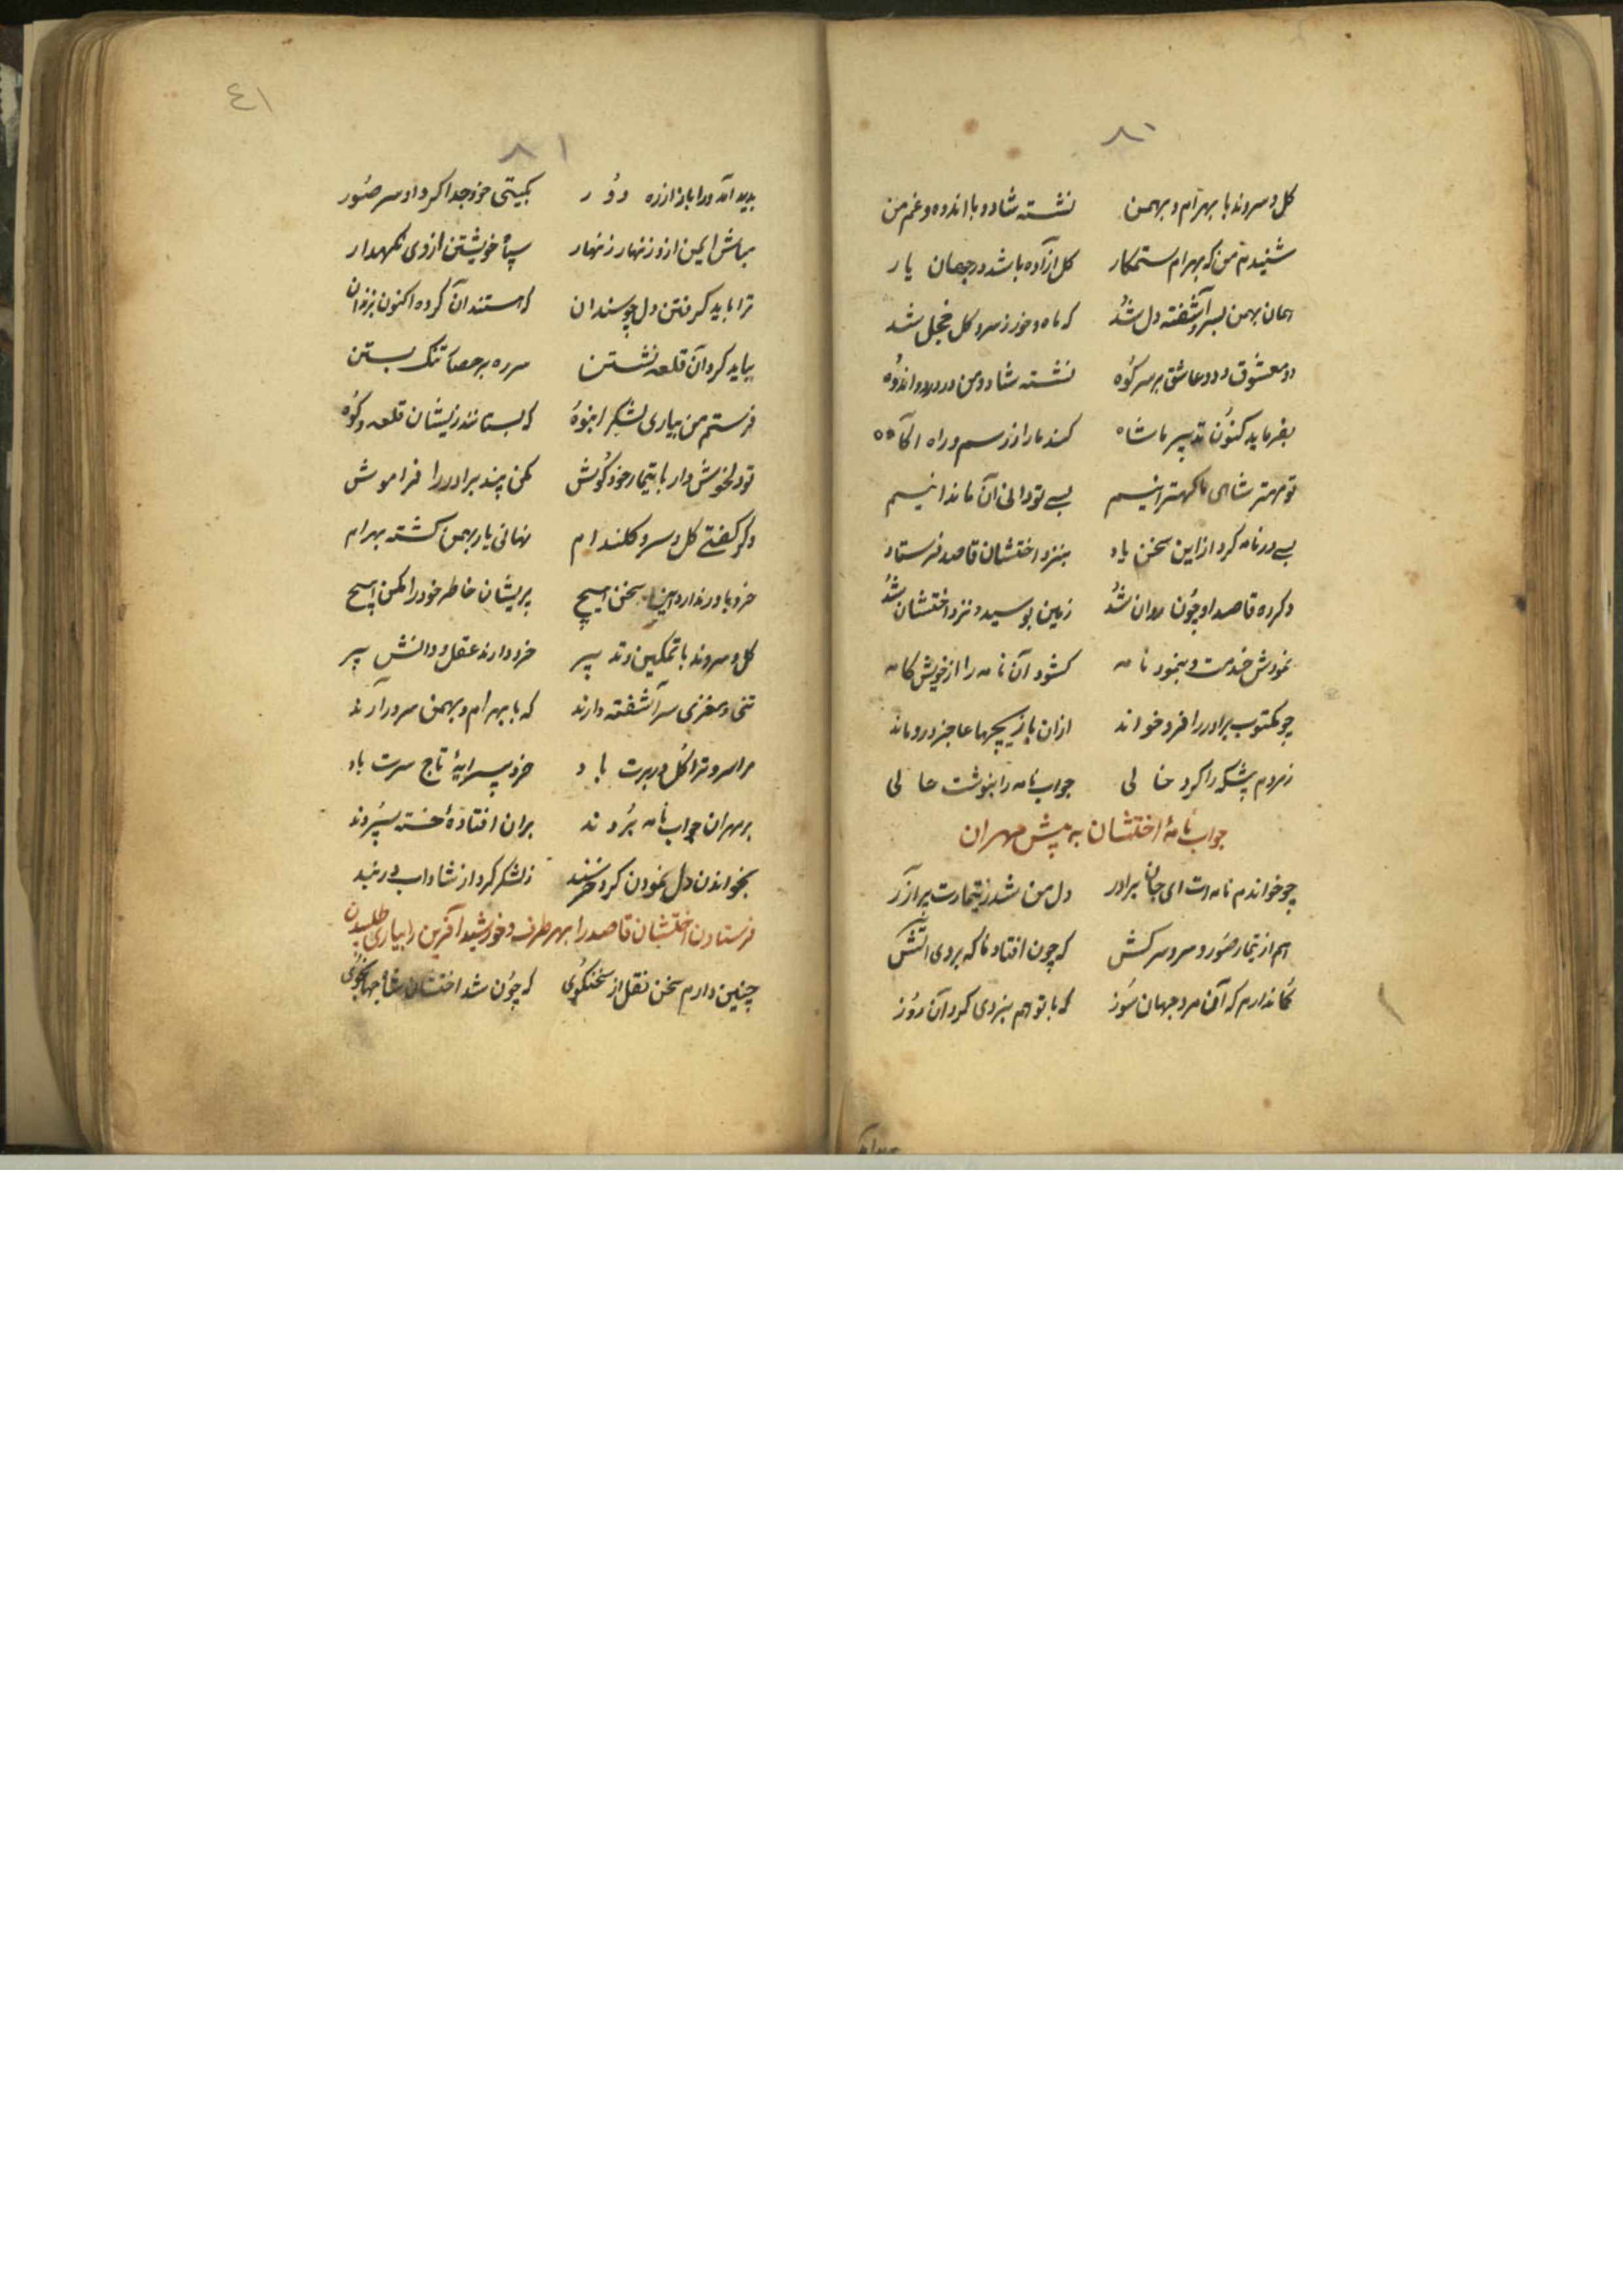 ٨٠
گل و سروند با بهرام و بهمن نشسته شاد و با اندوه و غم من
شنیدم من که بهرام ستمکار گل آزاده باشد در جهان یار
همان بهمن بسرو آشفته دل شد که ماه و خور ز سرو و گل خجل شد
دو معشوق و دو عاشق بر سر کوه نشسته شاد و من در درد و اندوه
بفرماید کنون تدبیر ما شاه کند ما را ز رسم و راه آگاه
تو مهتر شاهی ما کهترانیم بسی تو دانی آن ما ندانیم
بسی در نامه کرد از این سخن یاد بنزد اختشان قاصد فرستاد
دگر ره قاصد او چون روان شد زمین بوسید و نزد اختشان شد
نمودش خدمت و بنمود نامه گشود آن نامه را از خویش کامه
چو مکتوب برادر را فرو خواند ازان بازیچها عاجز فرو ماند
ز مردم پیشگه را کرد خالی جواب نامه را بنوشت حالی
جواب نامهٔ اختشان به پیش مهران
چو خواندم نامه‌ات ای جان برادر دل من شد ز تیمارت پر آزر
هم از تیمار صور و سرو سرکش که چون افتاد ناگه بر وی آتش
گمان دارم که آن مرد جهان سوز که با تو هم نبردی کرد آن روز
٤١
٨١
پدید آمد ورا باز از ره دور بگیتی خود جدا کرد او سر صور
مباش ایمن ازو زنهار زنهار سپاه خویشتن از وی نگهدار
ترا باید گرفتن دل چو سندان که هستند آن گروه اکنون بزندان
بباید گرد آن قلعه نشستن سر ره بر حصار تنگ بستن
فرستم من بیاری لشکر انبوه که بستانند زیشان قلعه و کوه
تو دلخوش دار با تیمار خود کوش مکن پند برادر را فراموش
دگر گفتی گل و سرو گلندام نهانی یار بهمن گشته بهرام
خرد باور ندارد این سخن هیچ پریشان خاطر خود را مکن هیچ
گل و سروند با تمکین و تدبیر خرد دارند عقل و دانش پیر
تنی و مغزی سر آشفته دارند که با بهرام و بهمن سر در آرند
مرا سرو و ترا گل در برت باد خرد پیرایهٔ تاج سرت باد
بر مهران جواب نامه بردند بران افتادهٔ خسته سپردند
بخواندن دل نمودن کرد خرسند ز لشکر کرد از شاداب دربند
فرستادن اختشان قاصد را بهر طرف و خورشید آفرین را بیاری طلبیدن
چنین دارم سخن نقل از سخنگوی که چون شد اختشان شاه جهانجوی